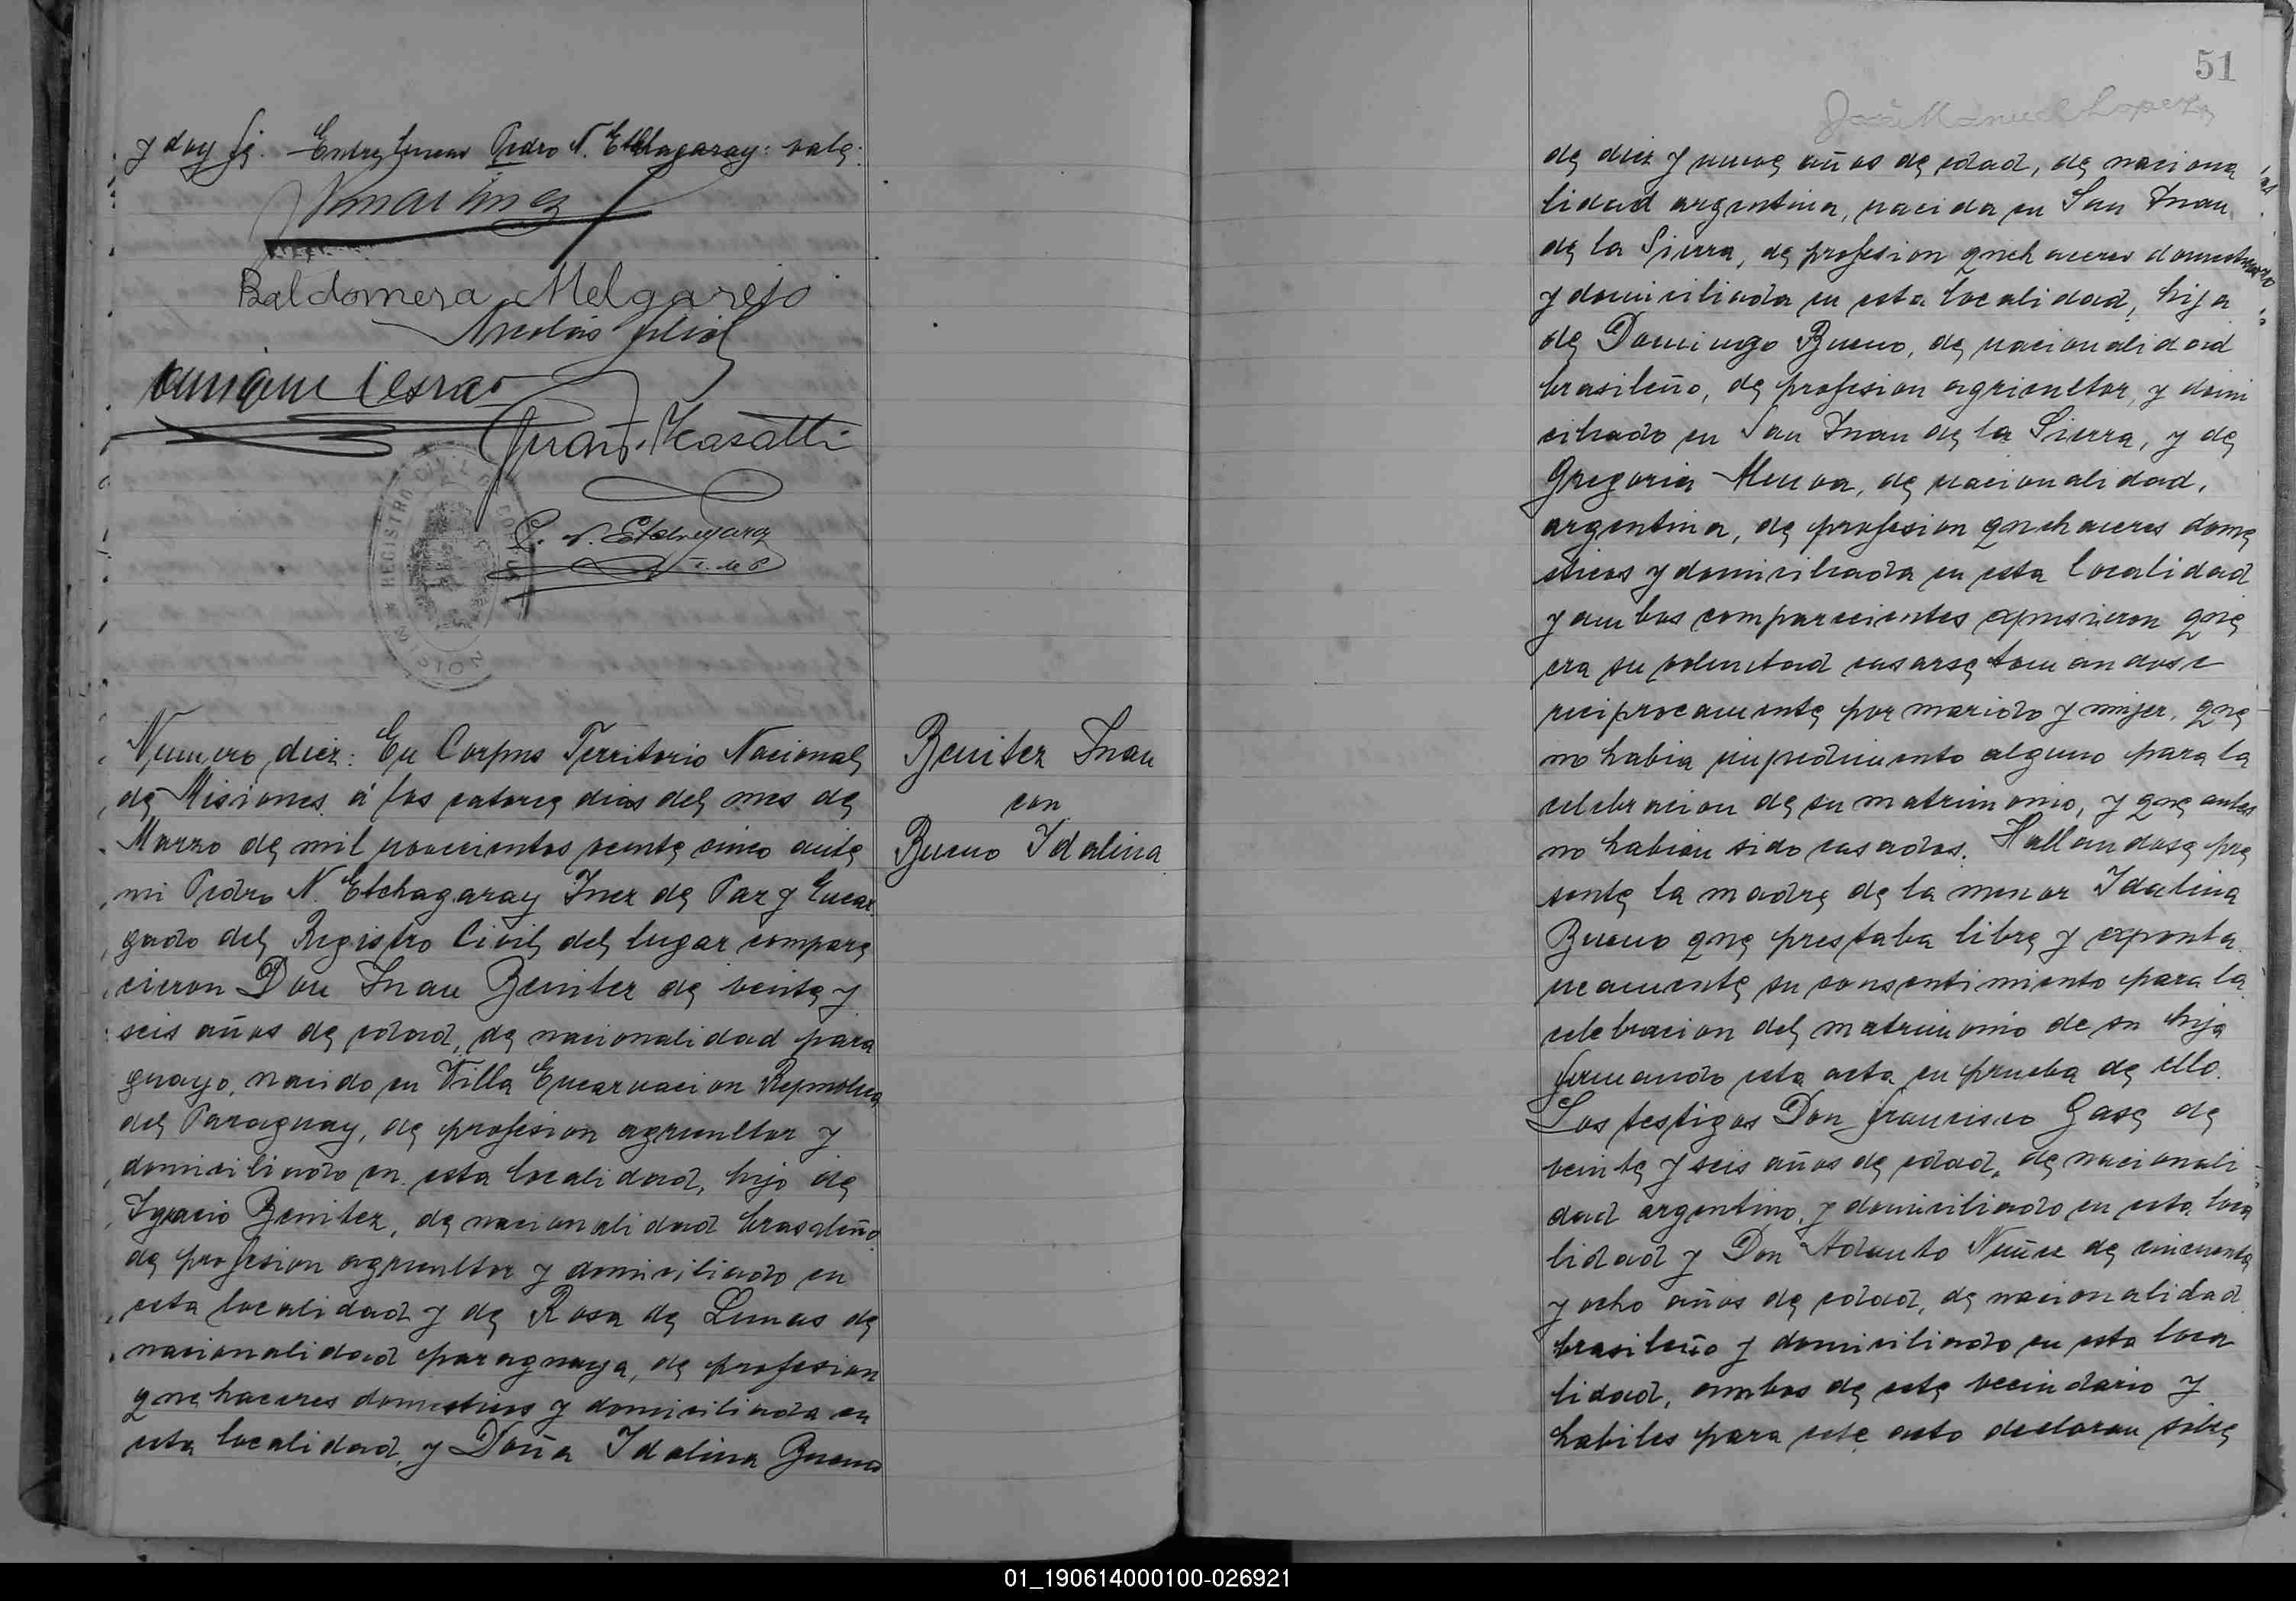 y doy fé. Entre lineas Pedro N. Etchagaray: vale:
Baldomera Melgarejo
Nicolás
Enrique
Juan Casatti
P. N. Etchegaray
REGISTRO CIVIL
CORPUS
MISIONES
Numero, diez: En Corpus Territorio Nacional
de Misiones á los catorce dias del mes de
Marzo de mil novecientos veinte cinco ante
mi Pedro N. Etchagaray Juez de Paz y Encar
gado del Registro Civil del lugar compare
cieron Don Juan Benitez de veinte y
seis años de edad, de nacionalidad para
guayo, nacido en Villa Encarnacion Republica
del Paraguay, de profesion agricultor y
domiciliado en esta localidad, hijo de
Ignacio Benitez, de nacionalidad brasileño
de profesion agricultor y domiciliado en
esta localidad y de Rosa de Lemas de
nacionalidad paraguaya, de profesion
quehaceres domesticos y domiciliada en
esta localidad, y Doña Idalina Bueno
Benitez Juan
con
Bueno Idalina
51
José Manuel Lopez
de diez y nueve años de edad, de naciona
lidad argentina, nacida en San Juan
de la Sierra, de profesion quehaceres domesticos
y domiciliada en esta localidad, hija
de Domingo Bueno, de nacionalidad
brasileño, de profesion agricultor, y domi
ciliado en San Juan de la Sierra, y de
Gregoria, de nacionalidad,
argentina, de profesion quehaceres dome
sticos y domiciliada en esta localidad
y ambos comparecientes expusieron que
era su voluntad casarse tomandose
reciprocamente por marido y mujer, que
no habia impedimento alguno para la
celebracion de su matrimonio, y que antes
no habian sido casados. Hallandose pre
sente la madre de la menor Idalina
Bueno que prestaba libre y exponta
neamente su consentimiento para la
celebracion del matrimonio de su hija
firmando esta acta en prueba de ello.
Los testigos Don Francisco Gase de
veinte y seis años de edad, de nacionali
dad argentino, y domiciliado en esta loca
lidad y Don Adauto Nuñez de cincuenta
y ocho años de edad, de nacionalidad
brasileño y domiciliado en esta loca
lidad, ambos de este vecindario y
habiles para este acto declaran sobre
01_190614000100-026921